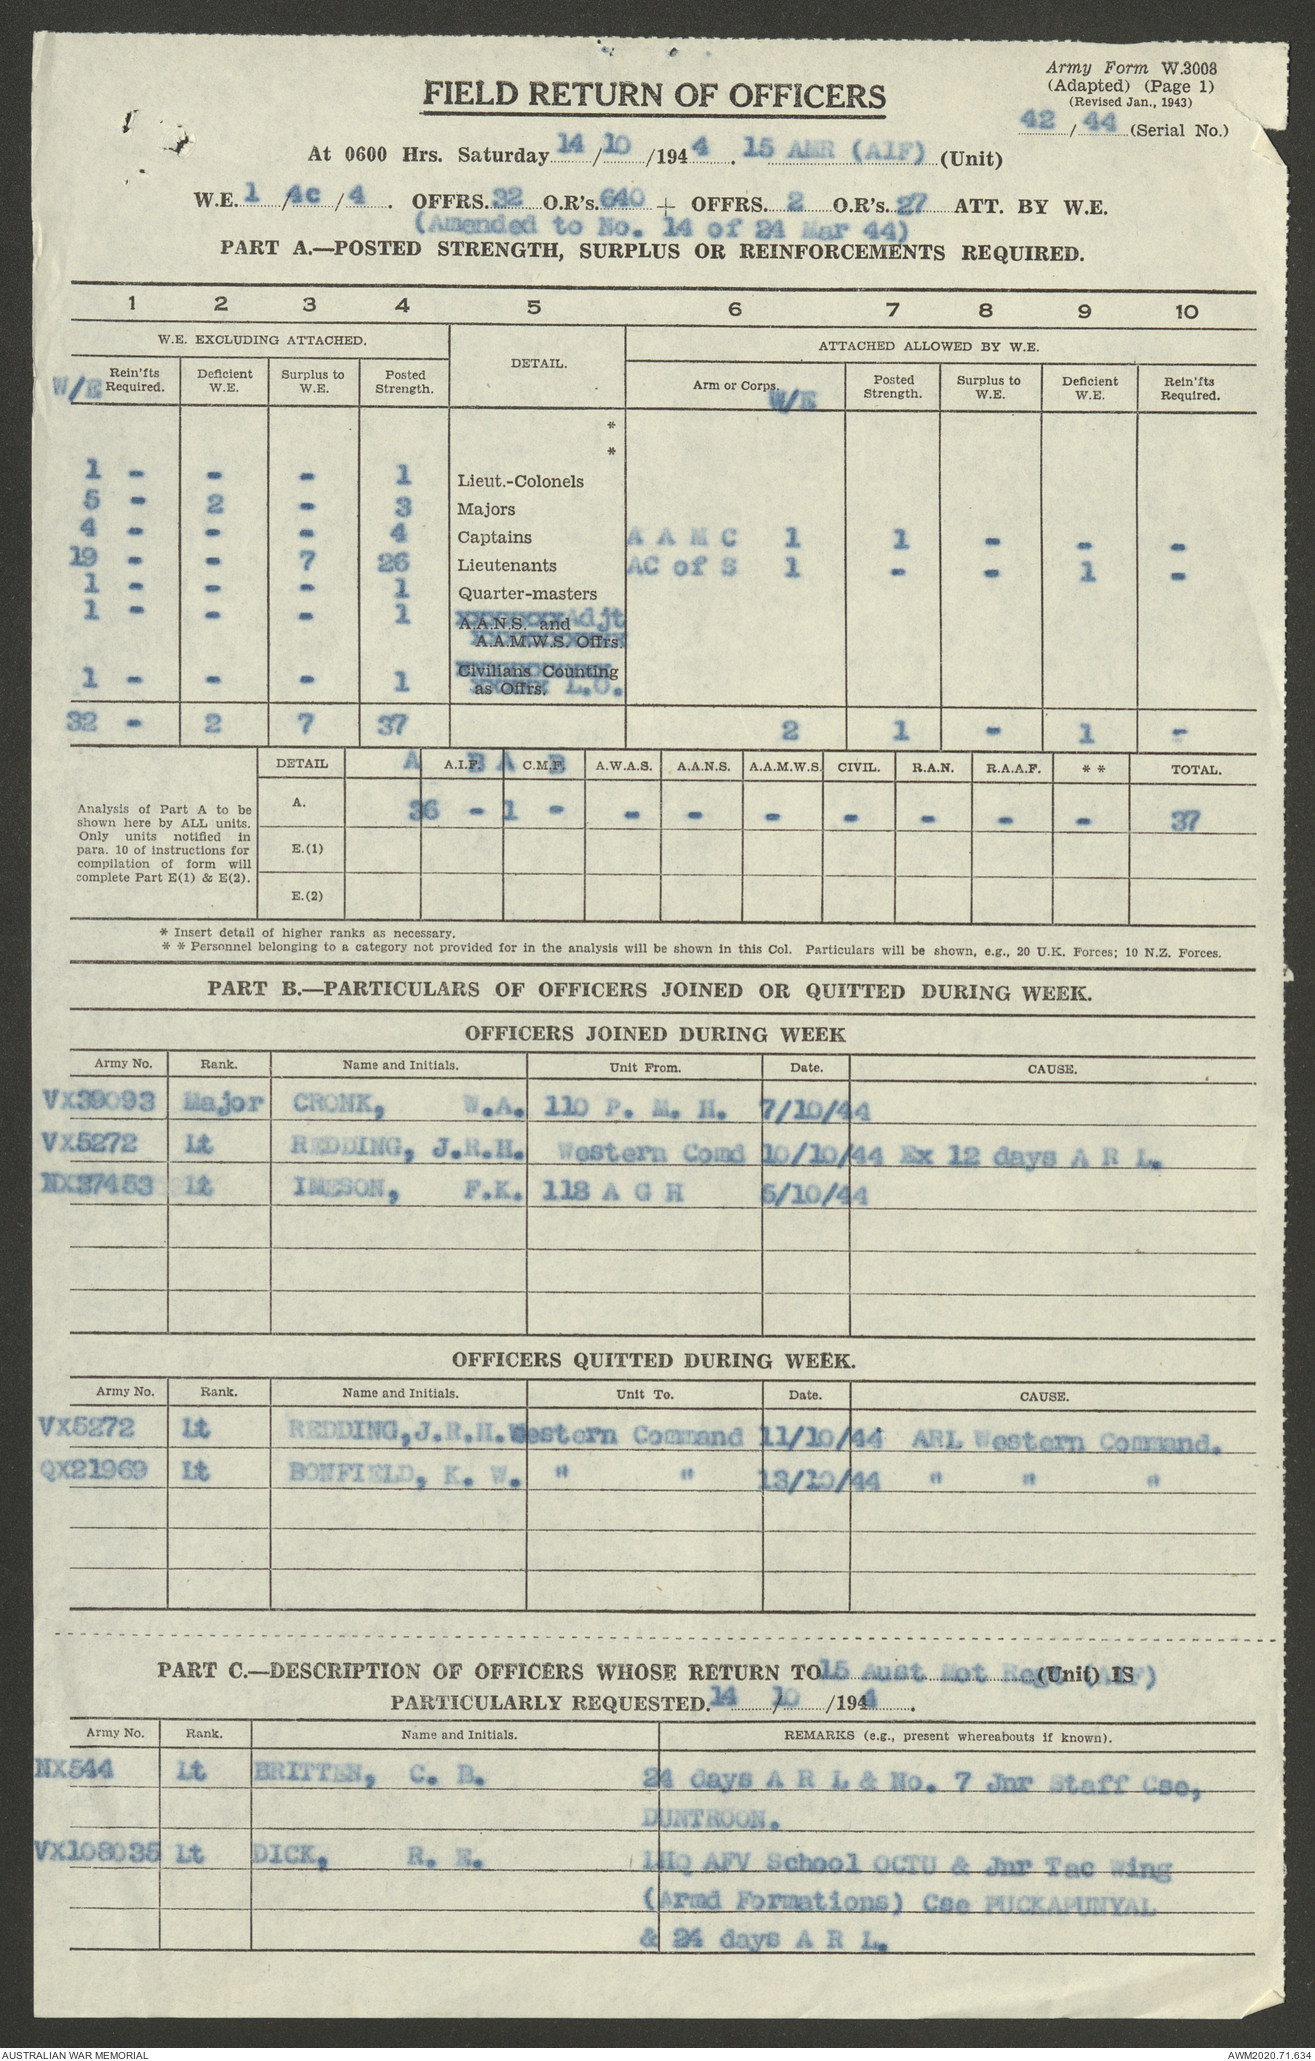 Army Form W.3008
(Adapted) (Page 1)
(Revised Jan., 1943)
42 / 44 (Serial No.)
FIELD RETURN OF OFFICERS
At 0600 Hrs. Saturday 14 / 10 /194 4 . 15 AMR (AIF) (Unit)
W.E. 1 / 4c / 4 . OFFRS. 32 O.R's. 640 + OFFRS. 2 O.R's. 27 ATT. BY W.E.
(Amended to No. 14 of 24 Mar 44)
PART A.—POSTED STRENGTH, SURPLUS OR REINFORCEMENTS REQUIRED.
1 2 3 4 5 6 7 8 9 10
W.E. EXCLUDING ATTACHED. DETAIL. ATTACHED ALLOWED BY W.E.
W/E Rein'fts Required. Deficient W.E. Surplus to W.E. Posted Strength. Arm or Corps. W/E Posted Strength. Surplus to W.E. Deficient W.E. Rein'fts Required.
*
*
1 - - - 1 Lieut.-Colonels
5 - 2 - 3 Majors
4 - - - 4 Captains A A M C 1 1 - - -
19 - - 7 26 Lieutenants AC of S 1 - - 1 -
1 - - - 1 Quarter-masters
1 - - - 1 A.A.N.S. and Adjt
A.A.M.W.S. Offrs.
1 - - - 1 Civilians Counting
as Offrs. L.O.
32 - 2 7 37 2 1 - 1 -
DETAIL A A.I.F. B A C.M.F. B A.W.A.S. A.A.N.S. A.A.M.W.S. CIVIL. R.A.N. R.A.A.F. * * TOTAL.
A. 36 - 1 - - - - - - - - 37
E.(1)
E.(2)
Analysis of Part A to be
shown here by ALL units.
Only units notified in
para. 10 of instructions for
compilation of form will
complete Part E(1) & E(2).
* Insert detail of higher ranks as necessary.
* * Personnel belonging to a category not provided for in the analysis will be shown in this Col. Particulars will be shown, e.g., 20 U.K. Forces; 10 N.Z. Forces.
PART B.—PARTICULARS OF OFFICERS JOINED OR QUITTED DURING WEEK.
OFFICERS JOINED DURING WEEK
Army No. Rank. Name and Initials. Unit From. Date. CAUSE.
VX39093 Major CRONK, W.A. 110 P. M. H. 7/10/44
VX5272 Lt REDDING, J.R.H. Western Comd 10/10/44 Ex 12 days A R L.
NX37453 Lt IMESON, F.K. 118 A G H 6/10/44
OFFICERS QUITTED DURING WEEK.
Army No. Rank. Name and Initials. Unit To. Date. CAUSE.
VX5272 Lt REDDING,J.R.H. Western Command 11/10/44 ARL Western Command.
QX21969 Lt BONFIELD, K. W. " " 13/10/44 " " "
PART C.—DESCRIPTION OF OFFICERS WHOSE RETURN TO 15 Aust Mot Regt (AIF) (Unit) IS
PARTICULARLY REQUESTED. 14 / 10 /194 4 .
Army No. Rank. Name and Initials. REMARKS (e.g., present whereabouts if known).
NX544 Lt BRITTEN, C. B. 24 days A R L & No. 7 Jnr Staff Cse,
DUNTROON.
VX108035 Lt DICK, R. E. LHQ AFV School OCTU & Jnr Tac Wing
(Armd Formations) Cse PUCKAPUNYAL
& 24 days A R L.
AUSTRALIAN WAR MEMORIAL AWM2020.71.634